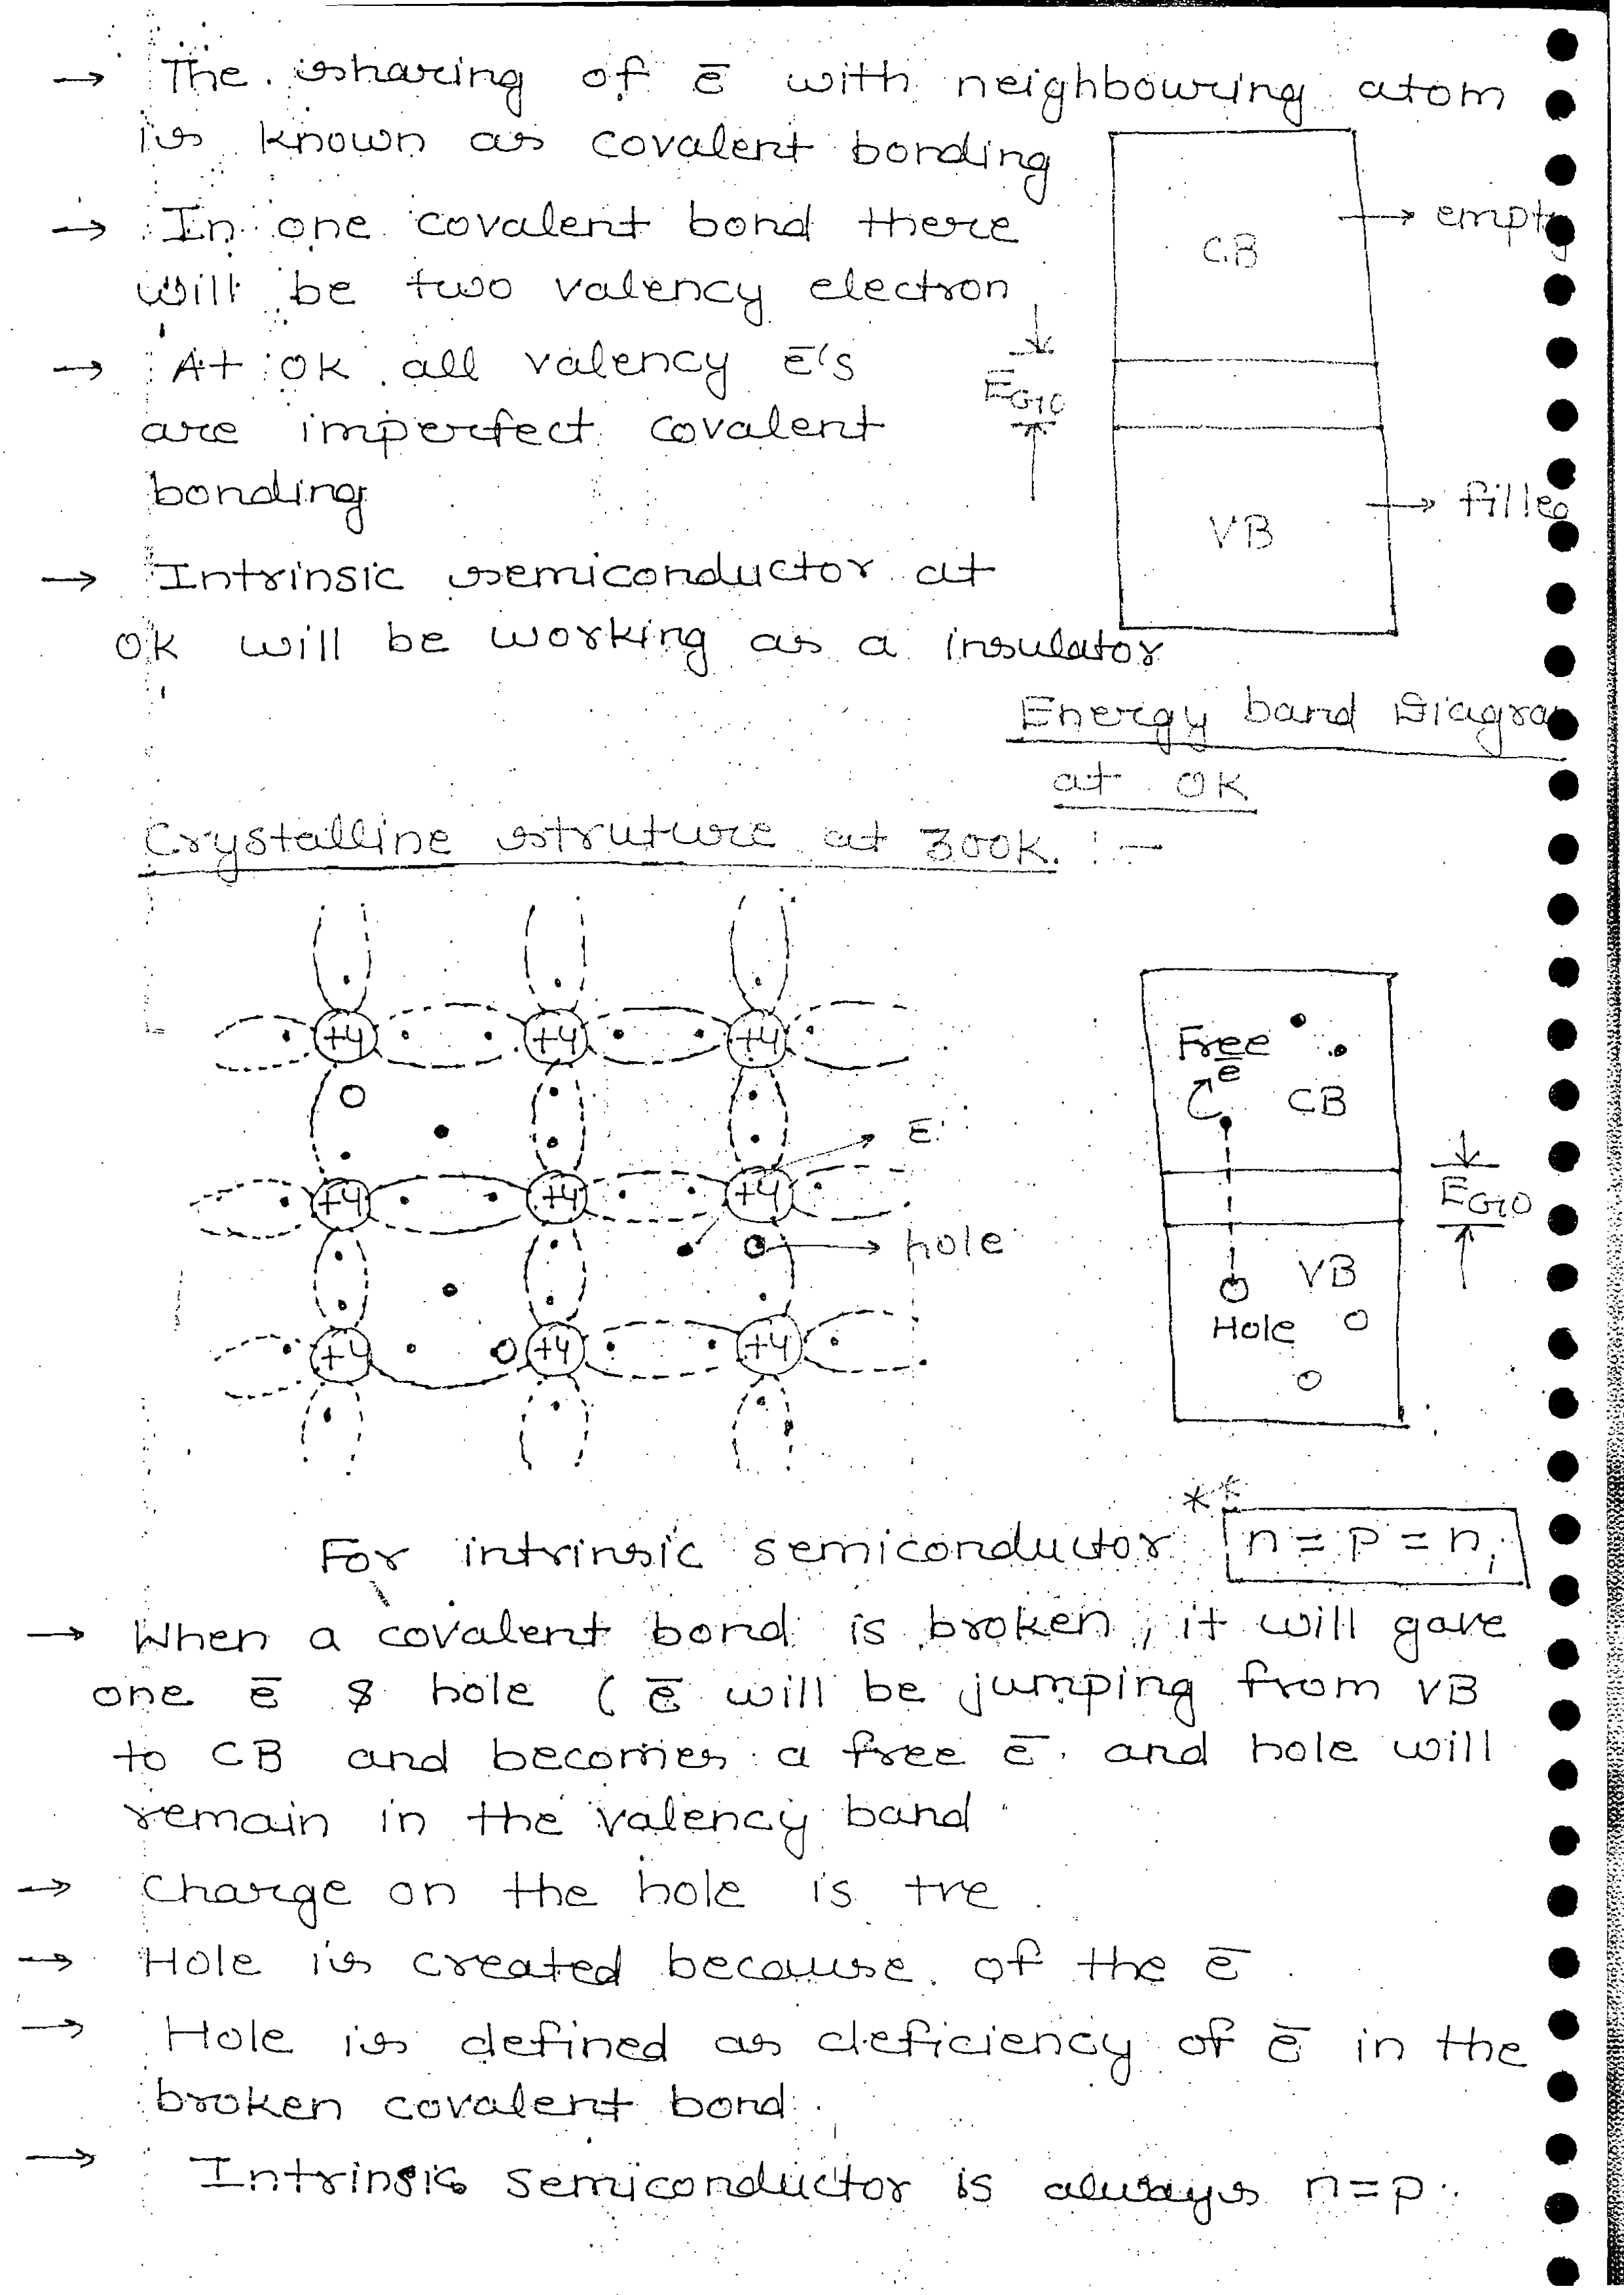 → The sharing of ē with neighbouring atom
is known as covalent bonding
→ In one covalent bond there
will be two valency electron
→ At 0K all valency ē's
are imperfect covalent
bonding
→ Intrinsic semiconductor at
0K will be working as a insulator
CB
→ empty
EG10
VB
→ filled
Energy band Diagram
at 0K
Crystalline struture at 300K. :-
+4 +4 +4
+4 +4 +4
+4 +4 +4
ē
→ hole
Free
ē
CB
EG10
VB
Hole
For intrinsic semiconductor ** n = p = ni
→ When a covalent bond is broken, it will gave
one ē & hole ( ē will be jumping from VB
to CB and becomes a free ē and hole will
remain in the valency band
→ Charge on the hole is +ve
→ Hole is created because of the ē
→ Hole is defined as deficiency of ē in the
broken covalent bond
→ Intrinsic semiconductor is always n=p.